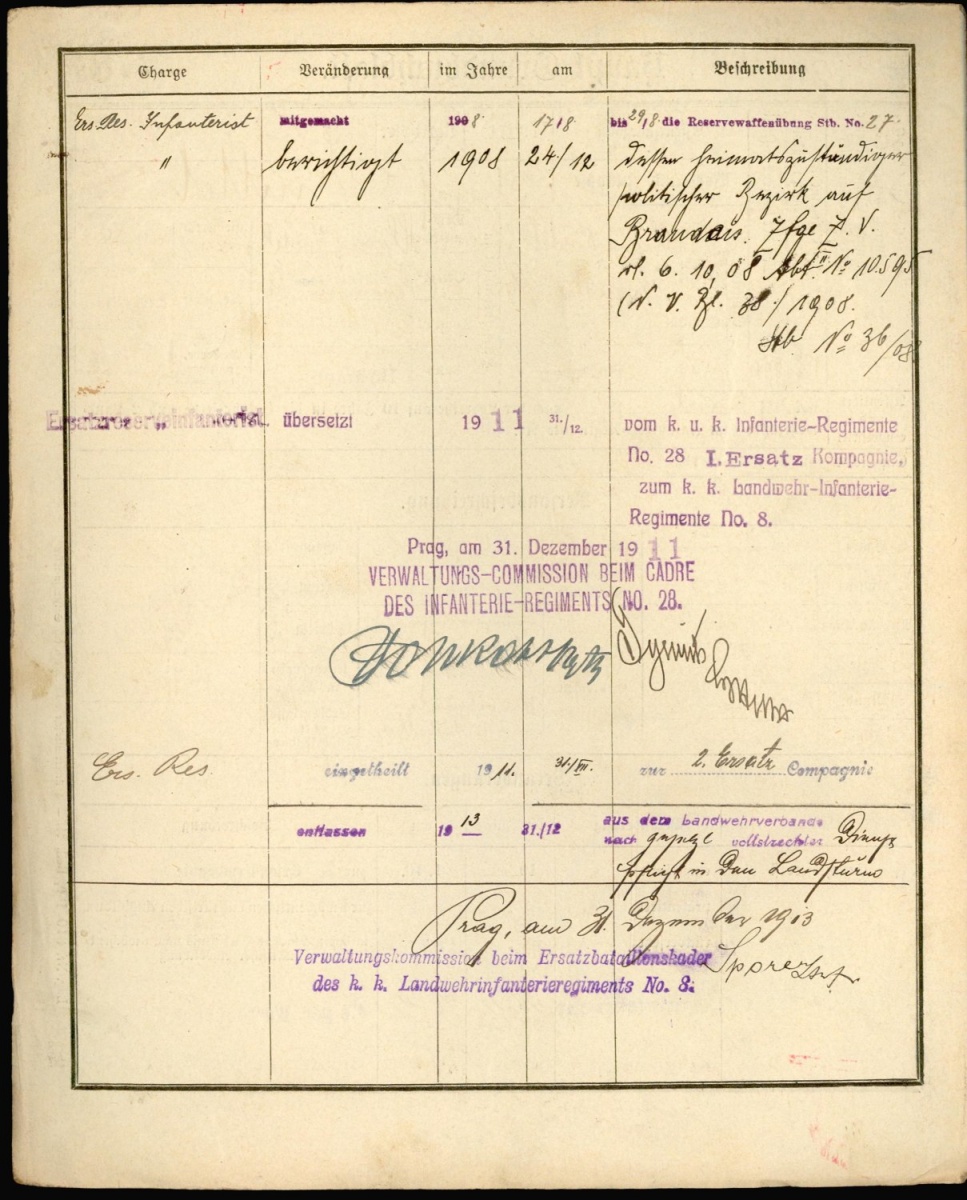 Charge Veränderung im Jahre am Beschreibung
Ers. Res. Infanterist mitgemacht 1908 17/8 bis 29/8 die Reservewaffenübung Stb. No. 27.
" berichtigt 1908 24/12 dessen heimatszuständiger
politischer Bezirk auf
Brandeis. Zfge Z. V.
vl. 6. 10, 08 Abt. II No 10.595
(N. V. Bl. 38./1908.
Stb No 36/08
Ersatzreserveinfanterist " übersetzt 1911 31./12. vom k. u. k. Infanterie-Regimente
No. 28 I. Ersatz Kompagnie,
zum k. k. Landwehr-Infanterie-
Regimente No. 8.
Prag, am 31. Dezember 1911
VERWALTUNGS-COMMISSION BEIM CADRE
DES INFANTERIE-REGIMENTS NO. 28.
Ers. Res. eingetheilt 1911. 31./XII. zur 2. Ersatz Compagnie
entlassen 1913 31./12 aus dem Landwehrverbande
nach gesetzl vollstreckter Dienst
pflicht in den Landsturm
Prag, am 31. Dezember 1913
Verwaltungskommission beim Ersatzbataillonskader
des k. k. Landwehrinfanterieregiments No. 8.